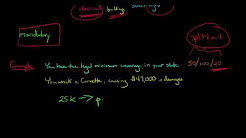 bodily
Mandatory
Split limit
50/100/25
Example You have the legal minimum coverage in your state
You wreck a Corvette, causing $47,000 in damages
25K → p